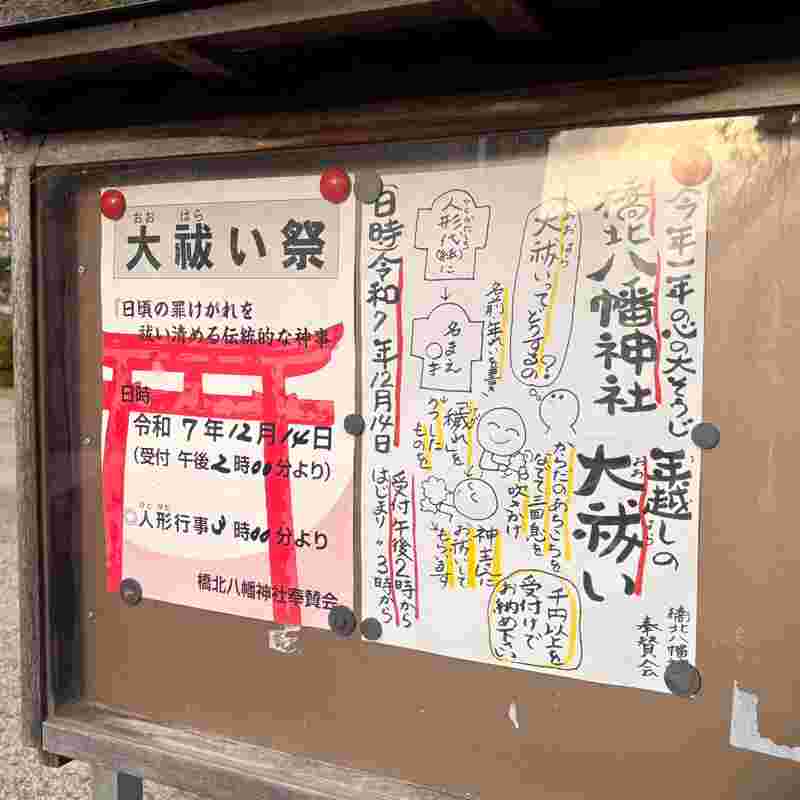 おお はら
大祓い祭
『日頃の罪けがれを
祓い清める伝統的な神事
日時
令和 7年12月14日
(受付 午後2時00分より)
ひと がた
○人形行事3時00分より
橋北八幡神社奉賛会
今年一年の心の大そうじ
橋北八幡神社
年越しの
おお はら
大祓い
橋北八幡
奉賛会
おお はら
大祓いってどうするの?
人形代(紙)に
↓
名まえ
名前・年れいを書き
からだのあちこちを
なでて三回息を
吹きかけ
穢れを
うつした
ものを
神主に
お祓いして
もらいます
千円以上を
受付けで
お納め下さい
日時 令和7年12月14日
受付 午後2時から
はじまり 〃 3時から